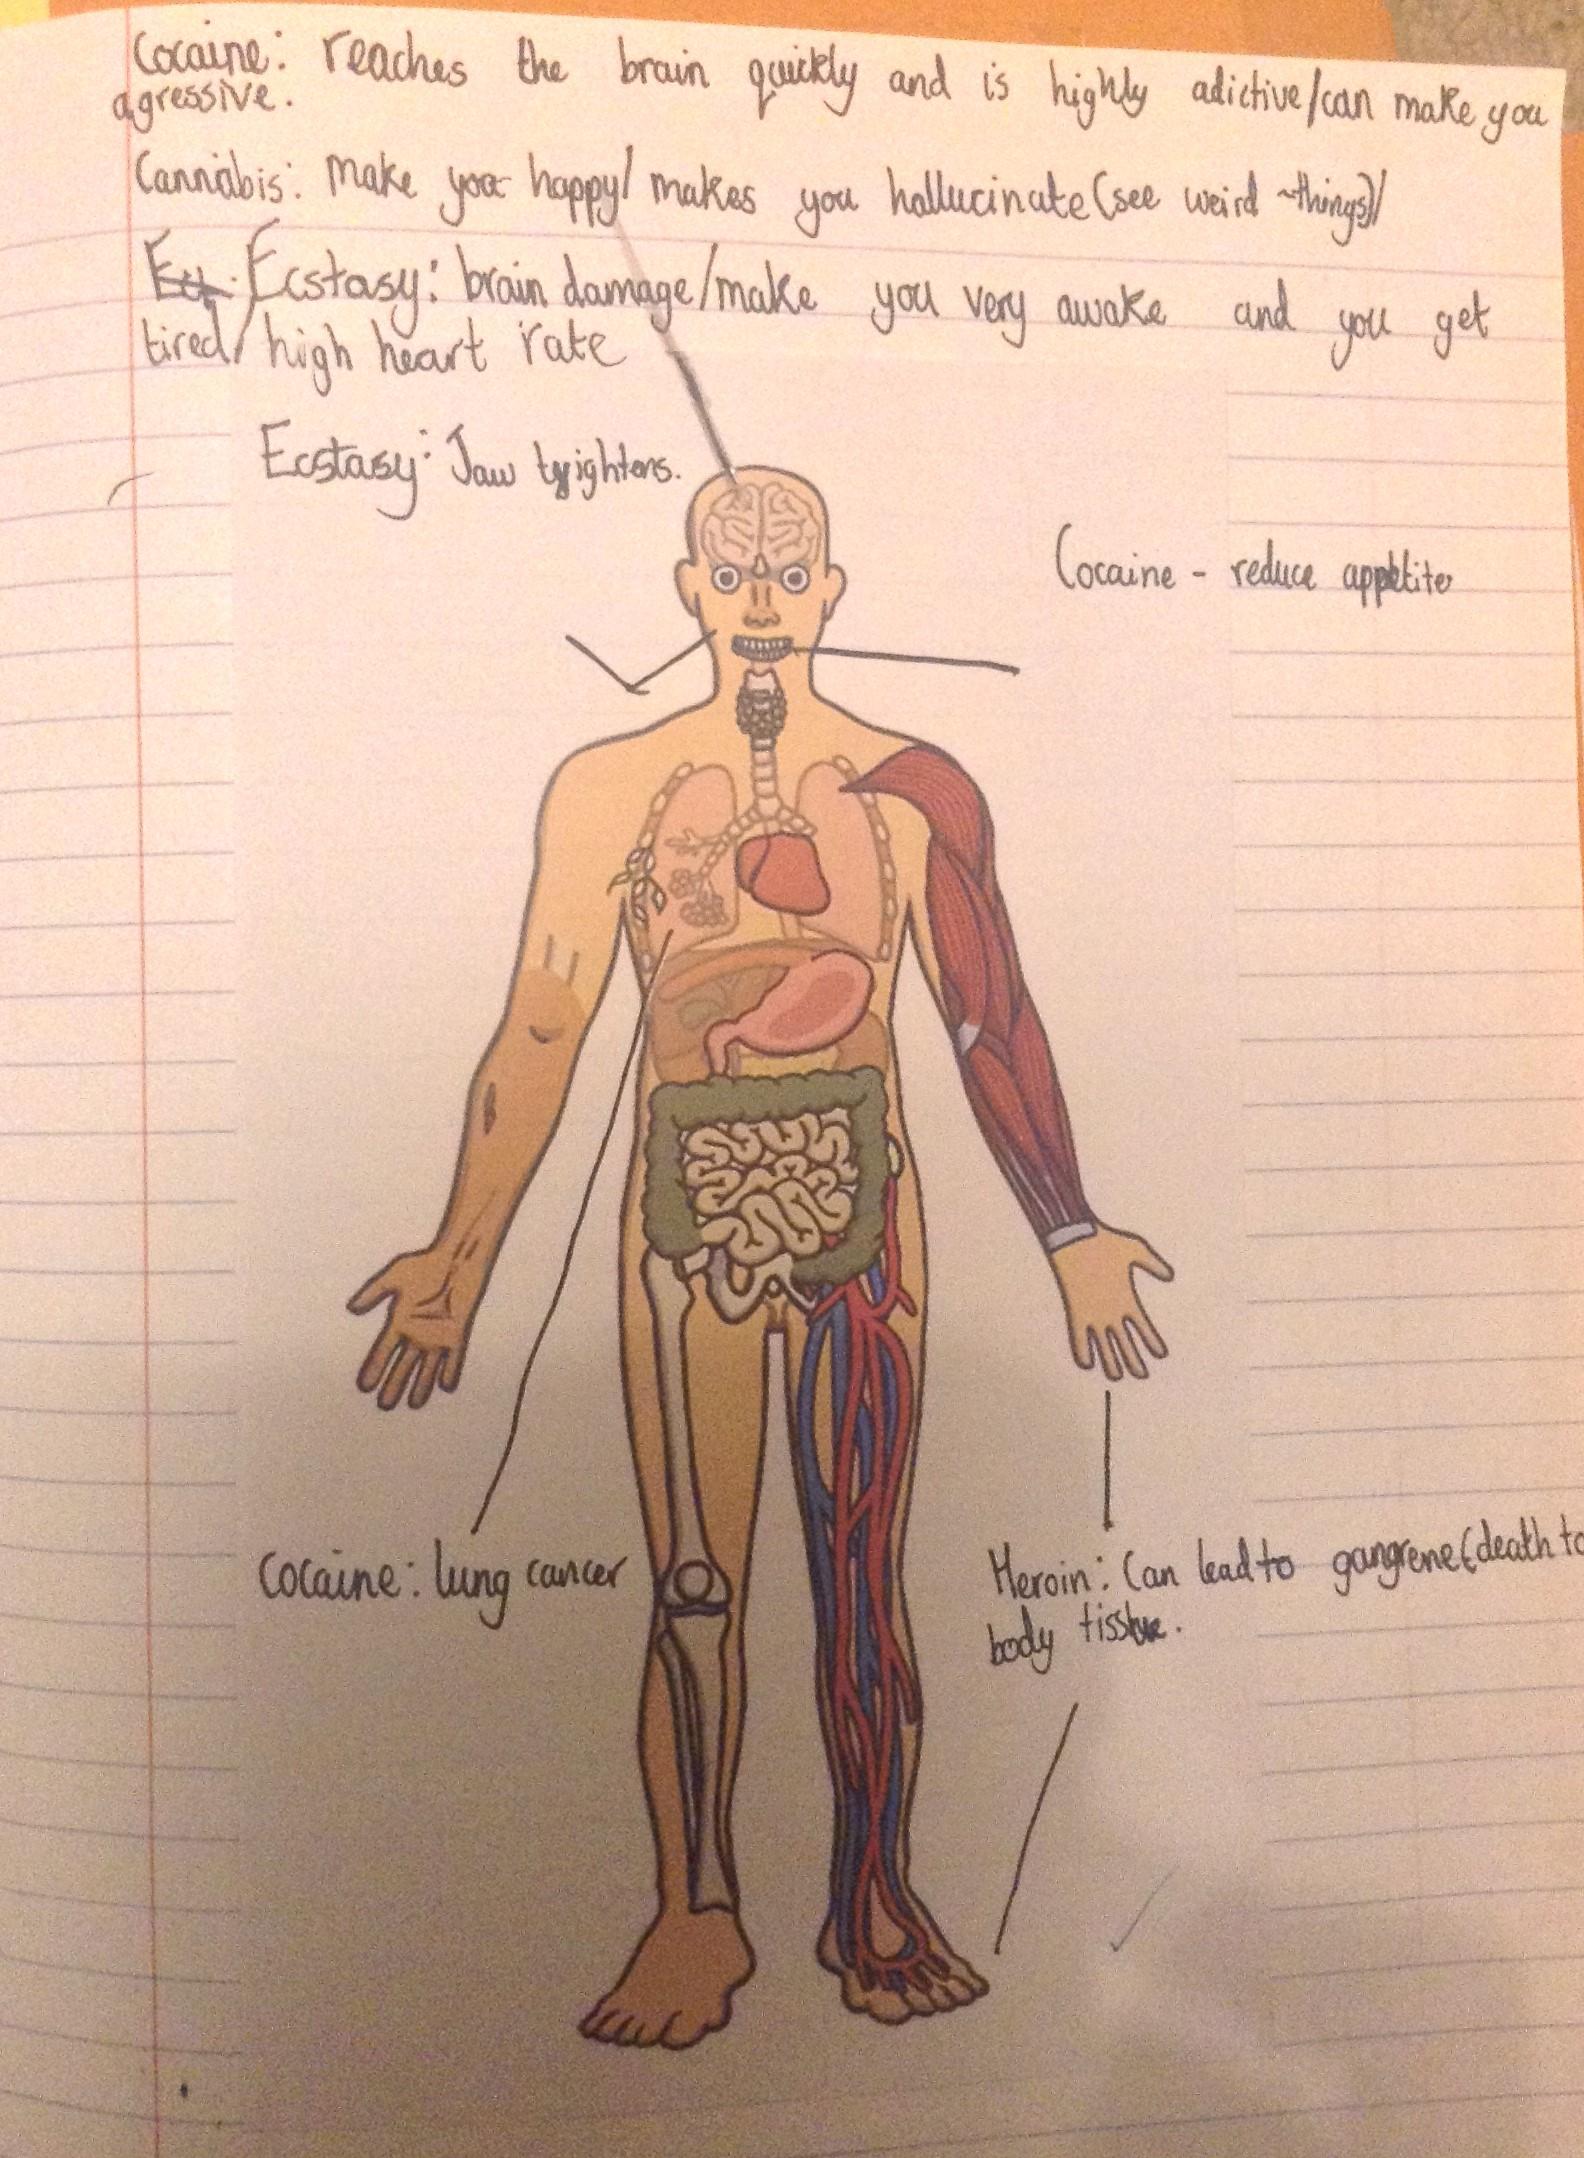 Cocaine: reaches the brain quickly and is highly adictive/can make you
agressive.
Cannabis: Make you happy/ makes you hallucinate (see weird things)/
Ecstasy: brain damage/make you very awake and you get
tired/ high heart rate
Ecstasy: Jaw tightens.
Cocaine - reduce appetite
Cocaine: lung cancer
Heroin: Can lead to gangrene (death to
body tissue.